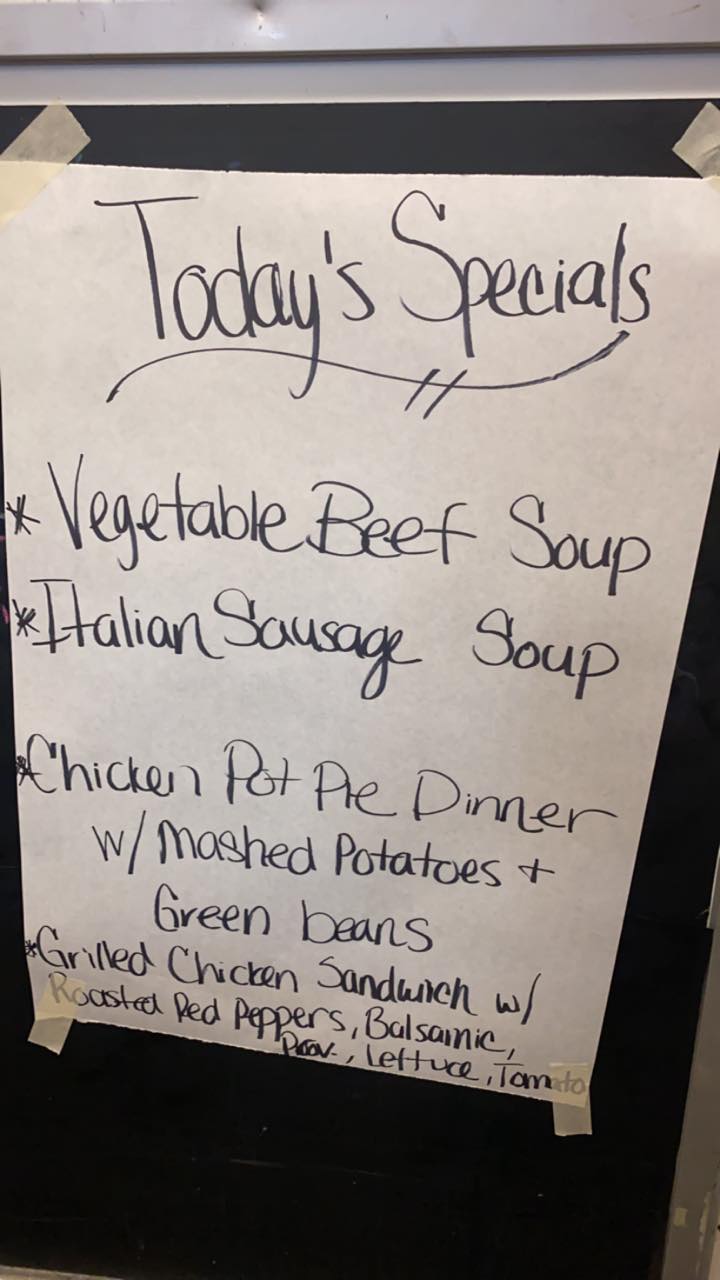 Today's Specials
* Vegetable Beef Soup
* Italian Sausage Soup
* Chicken Pot Pie Dinner
w/ Mashed Potatoes +
Green beans
* Grilled Chicken Sandwich w/
Roasted Red Peppers, Balsamic,
Prov., Lettuce, Tomato